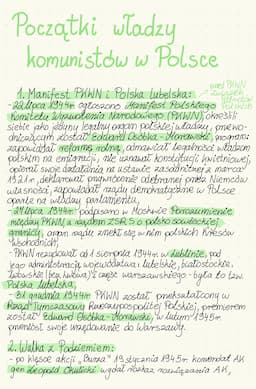 Początki władzy
komunistów w Polsce
1. Manifest PKWN i Polska lubelska:
- 22 lipca 1944r. ogłoszono Manifest Polskiego
Komitetu Wyzwolenia Narodowego (PKWN), określił
siebie jako jedyny legalny organ polskiej władzy, przewo-
dniczącym został Edward Osóbka-Morawski, program:
zapowiadał reformę rolną, odmawiał legalności władzom
polskim na emigracji, nie uznawał konstytucji kwietniowej,
opierał swoje działania na ustawie zasadniczej z marca
1921r., deklarował przywrócenie odebranej przez Niemców
własności, zapowiadał rządy demokratyczne w Polsce
oparte na władzy parlamentu,
- 27 lipca 1944r. podpisano w Moskwie Porozumienie
między PKWN a rządem ZSRS o polsko-sowieckiej
granicy,
wschodnich,
- PKWN rezydował od 1 sierpnia 1944r. w Lublinie, pod
jego administracją województwa: lubelskie, białostockie,
i część warszawskiego - była to tzw.
Polska lubelska,
- 31 grudnia 1944r. PKWN został przekształcony w
Rząd Tymczasowy Rzeczpospolitej Polskiej, premierem
został Edward Osóbka-Morawski, w lutym 1945r.
przeniósł swoje urzędowanie do Warszawy.
2. Walka z Podziemiem:
- po klęsce akcji „Burza" 19 stycznia 1945r. komendant AK
gen. Leopold Okulicki wydał rozkaz rozwiązania AK,